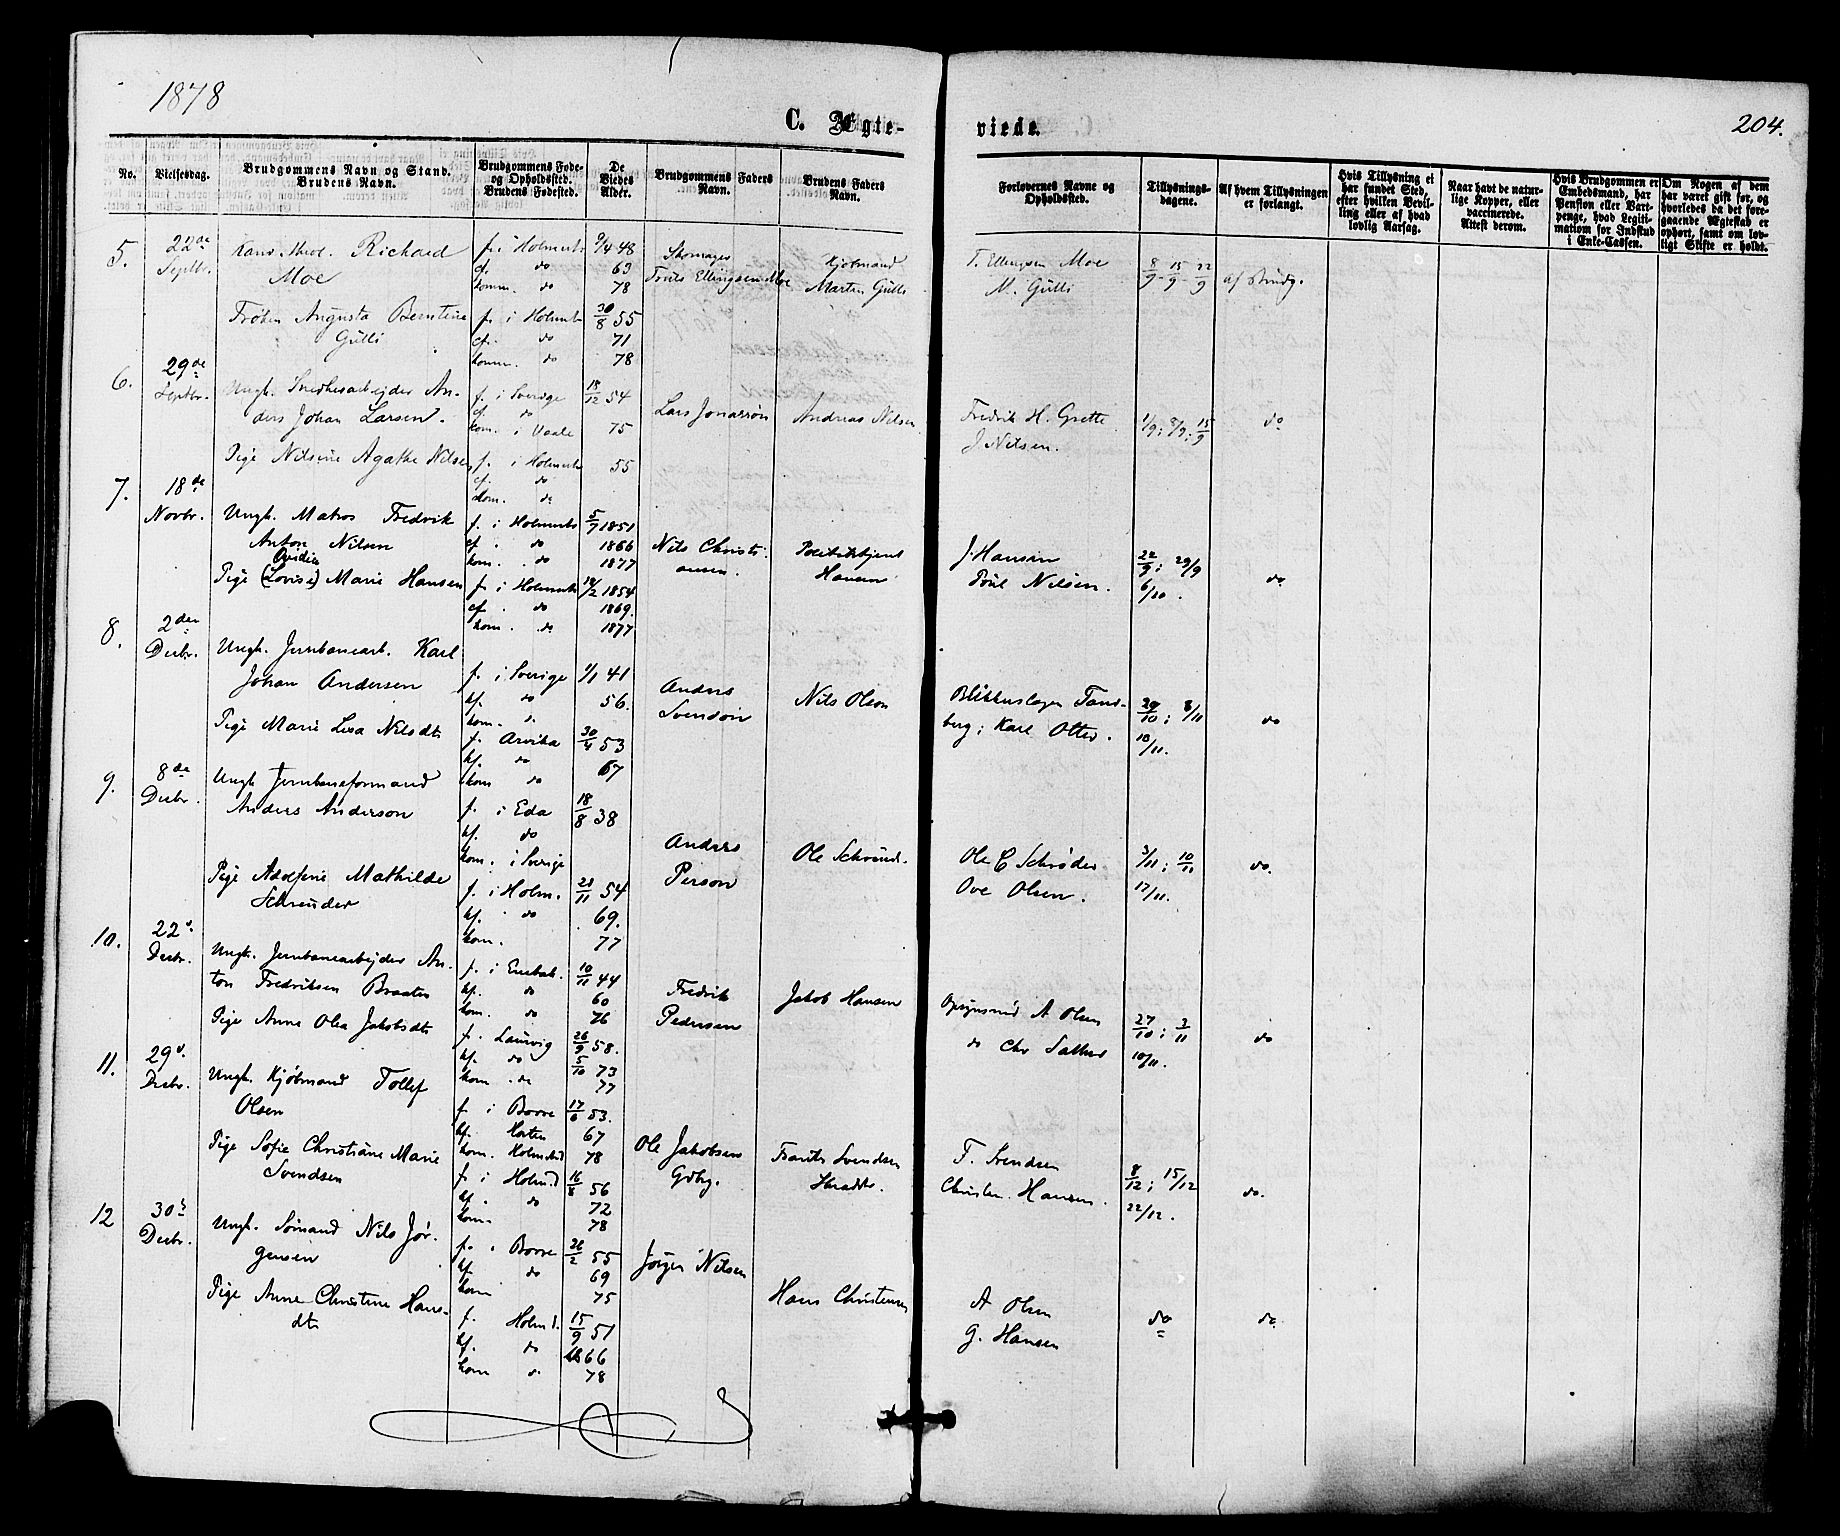 1878
204.
C. Ægte-
viede.
No.
Vielsesdag.
Brudgommens Navn og Stand.
Brudens Navn.
Brudgommens Føde-
og Opholdssted.
Brudens Fødested.
De
Viedes
Alder.
Brudgommens Faders
Navn.
Brudens Faders
Navn.
Forlovernes Navne og
Opholdssted.
Tillysnings-
dagene.
Af hvem Tillysningen
er forlangt.
Hvis Tillysning ei
har fundet Sted,
efter hvilken Bevil-
ling eller af hvad
lovlig Aarsag.
Naar havt de natur-
lige Kopper, eller
vaccinerede.
Attest derom.
Hvis Brudgommen er
Embedsmand, har
Pension eller Vart-
penge, hvad Legiti-
mation for Indskud
i Enke-Cassen.
Om Nogen af dem
har været gift før, og
hvorledes da det fore-
gaaende Ægteskab er
ophørt, samt om lov-
ligt Skifte er holdt.
5.
22de
Septbr.
Kand. theol. Richard
Moe
f. i Holmestr 9/4 48
cf. do 63
komm. do 78
Skomager
Truls Ellingsen Moe
Kjøbmand
Marten Gulli
T. Ellingsen Moe
M. Gulli
8/9 - 15/9 - 22/9
af Brudg.
Frøken Augusta Berntine
Gulli
f. i Holmestr 30/8 55
cf. do 71
komm. do 78
6.
29de
Septbr.
Ungk. Snedkerarbejder An-
ders Johan Larsen.
f. i Sverige 18/12 54
cf. do
kom. i Vaale 75
Lars Jonasson
Andreas Nilsen
Fredrik H. Grette
J. Nilsen.
1/9; 8/9; 15/9
do
Pige Nilsine Agathe Nilsen
f. i Holmestr 55
cf. do
kom. do
7.
18de
Novbr.
Ungk. Matros Fredrik
Anton Nilsen
f. i Holmestr 5/7 1851
cf. do 1866
kom. do 1877
Nils Christi-
ansen.
Politibetjent
Hansen
J. Hansen
Poul Nilsen.
22/9; 29/9
6/10.
do
Ovidia
Pige (Lovise) Marie Hansen
f. i Holmestr 14/2 1854
cf. do 1869.
kom. do 1877
8.
2den
Decbr.
Ungk. Jernbanearb. Karl
Johan Andersen
f. i Sverige 1/1 41
kf. do 56.
kom. do
Anders
Svenson
Nils Olson
Blikkenslager Tand-
berg; Karl Otter.
10/11.
do
Pige Marie Lisa Nilsdtr
f. Arvika 30/4 53
kf. do 67
kom do
9.
8de
Decbr.
Ungk Jernbaneformand
Anders Anderson
f. i Eda 18/8 38
kf. do
kom. i Sverige
Anders
Person
Ole C Schrøder
Ove Olsen.
3/11; 10/11
17/11.
do.
Pige Adolfine Mathilde
Schrøuder
f. i Holm. 21/11 54
kf. do 69.
kom. 77
10.
22d.
Decbr.
Ungk. Jernbanearbejder An-
ton Fredriksen Braaten
f. i Enebak. 10/11 44
kf. do 60
kom. do 76
Fredrik
Pedersen
Jakob Hansen
Opsynsmd A Olsen
do Chr
27/10; 3/11
10/11.
do
Pige Anne Olea Jakobsdtr
f. Laurvig 26/9 58.
kf. do 5/10 73
kom. do 77
11.
29d.
Decbr.
Ungk. Kjøbmand Tollef
Olsen
f. i Borre 17/6 53.
kf. Horten 67
kom. Holmestrd 78
Ole Jakobsen
Gdbg.
Frants Svendsen
F. Svendsen
Christen Hansen.
8/12; 15/12
22/12.
do.
Pige Sofie Christiane Marie
Svendsen
f. i Holmd 16/8 56
kf. do 72
kom. 78
12
30d
Decbr.
Ungk. Sømand Nils Jør-
gensen
f. i Borre 26/2 55
kf. do 69
kom 75
Jørgen Nilsen
Hans Christensen
A Olsen
G. Hansen
do
do
Pige Anne Christine Hans-
dtr
f. Holmd. 15/9 51
kf. do 66
kom do 78